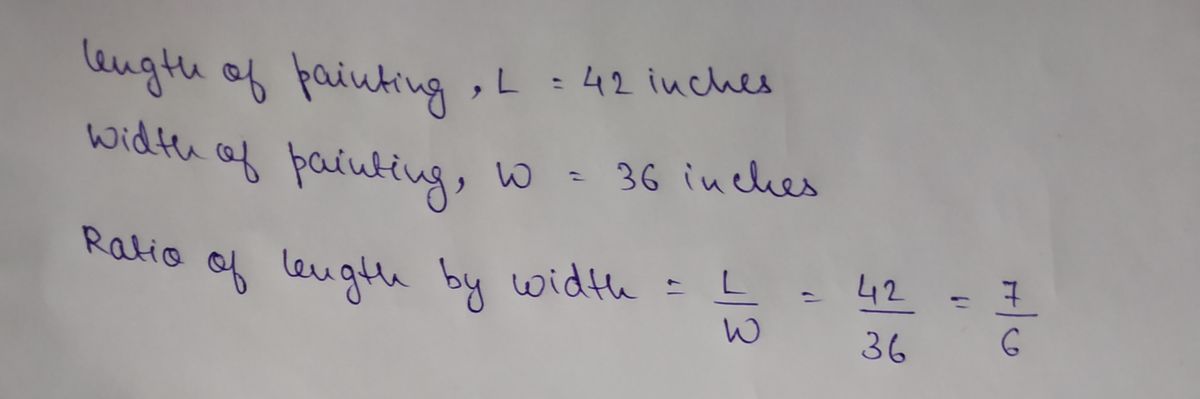 Length of painting, L = 42 inches
Width of painting, W = 36 inches
Ratio of length by width = L/W = 42/36 = 7/6